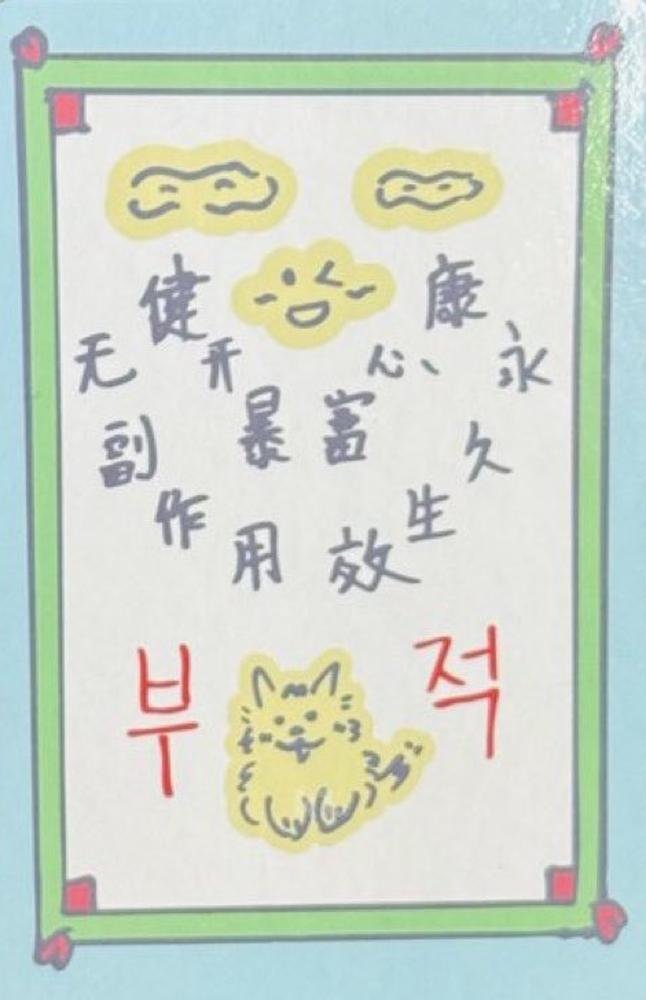 健康
开心、
暴富
无副作用
永久生效
부적